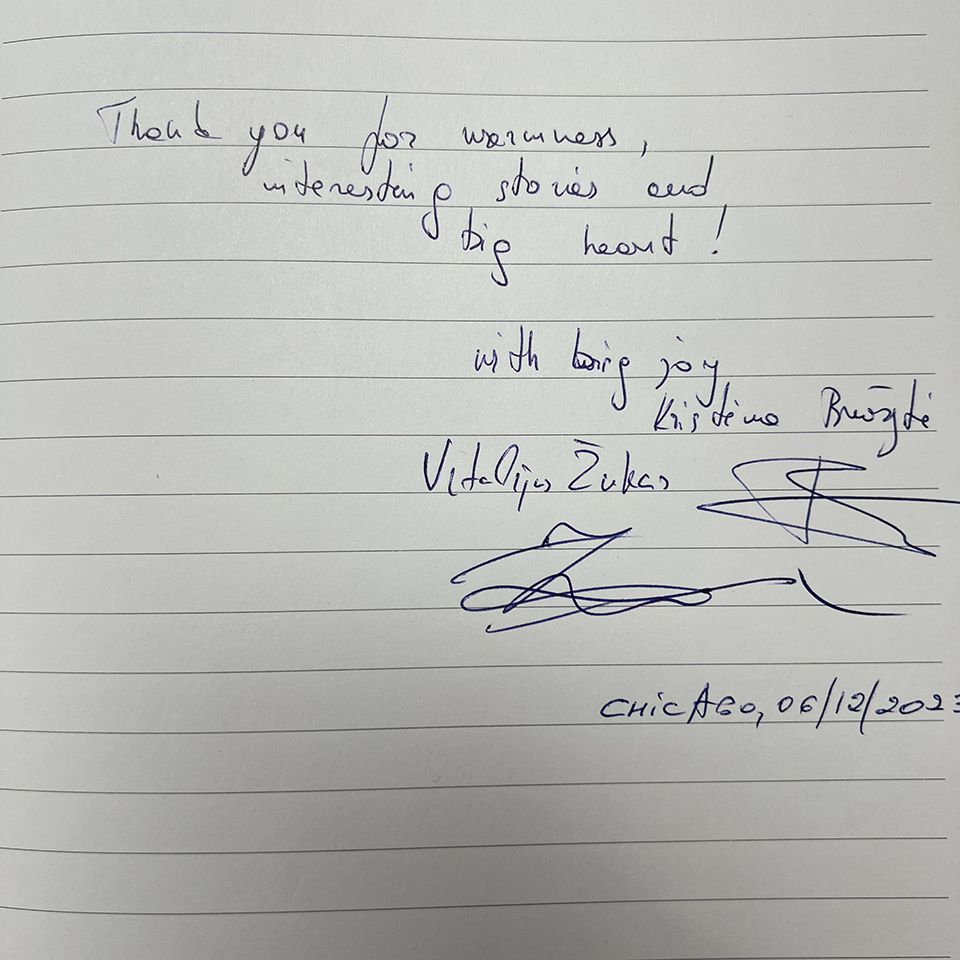 Thank you for warmness,
interesting stories and
big heart!
with big joy
Kristina
Vitalijus Žukas
CHICAGO, 06/12/2023